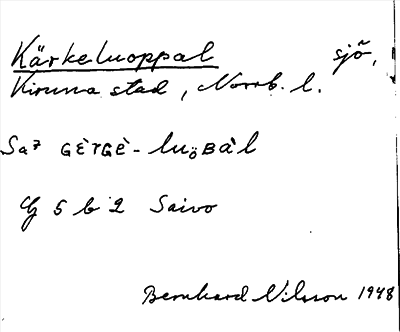 Kärkeluoppal sjö,
Kiruna stad, Norrb. l.
Sa7 GÈrGÈ-luöBàl
Cg 5 b 2 Saivo
Bernhard Nilsson 1948